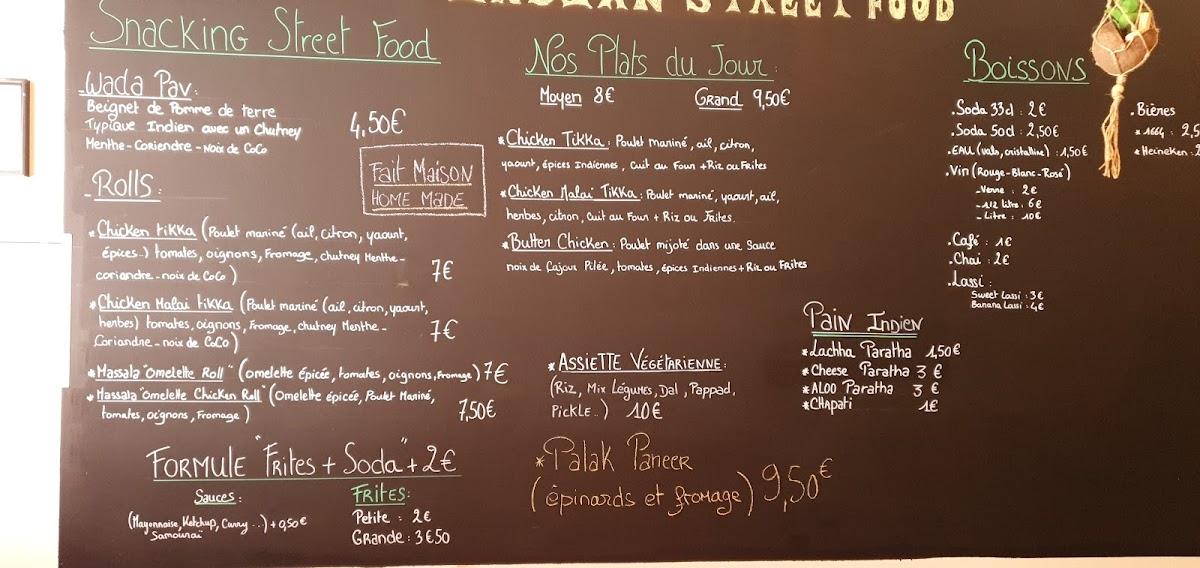 STREET FOOD
Snacking Street Food
- Wada Pav :
Beignet de Pomme de terre
Typique Indien avec un Chutney
Menthe - Coriendre - Noix de CoCo
4,50€
Fait Maison
HOME MADE
- Rolls :
* Chicken tikka (Poulet mariné (ail, citron, yaourt,
épices..) tomates, oignons, Fromage, chutney Menthe -
coriandre - noix de CoCo)
7€
* Chicken Malai tikka (Poulet mariné (ail, citron, yaourt,
herbes) tomates, oignons, Fromage, chutney Menthe -
Coriandre - noix de CoCo)
7€
* Massala "omelette Roll" (omelette épicée, tomates, oignons, Fromage) 7€
* Massala "omelette Chicken Roll" (Omelette épicée, Poulet Mariné,
tomates, oignons, Fromage)
7,50€
Formule "Frites + Soda" + 2€
Sauces :
(Mayonnaise, Ketchup, Curry ...) + 0,50€
Samouraï
FRITES :
Petite : 2€
Grande : 3€50
Nos Plats du Jour :
Moyen 8€ Grand 9,50€
* Chicken Tikka : Poulet mariné, ail, citron,
yaourt, épices Indiennes, Cuit au Four + Riz ou Frites
* Chicken Malai Tikka : Poulet mariné, yaourt, ail,
herbes, citron, Cuit au Four + Riz ou Frites.
* Butter Chicken : Poulet mijoté dans une Sauce
noix de Cajoux Pilée, tomates, épices Indiennes + Riz ou Frites
* Assiette Végétarienne :
(Riz, Mix Légumes, Dal, Pappad,
Pickle..) 10€
* Palak Paneer
(épinards et fromage) 9,50€
Boissons
. Soda 33cl : 2€
. Soda 50cl : 2,50€
. EAU (vals, cristalline) : 1,50€
. Vin (Rouge - Blanc - Rosé)
- Verre : 2€
- 1/2 litre : 6€
- Litre : 10€
. Café : 1€
. Chai : 2€
. Lassi :
Sweet Lassi : 3€
Banana Lassi : 4€
. Bières
* 1664 : 2,5
* Heineken :
Pain Indien
* Lachha Paratha 1,50€
* Cheese Paratha 3 €
* ALOO Paratha 3 €
* CHapati 1€